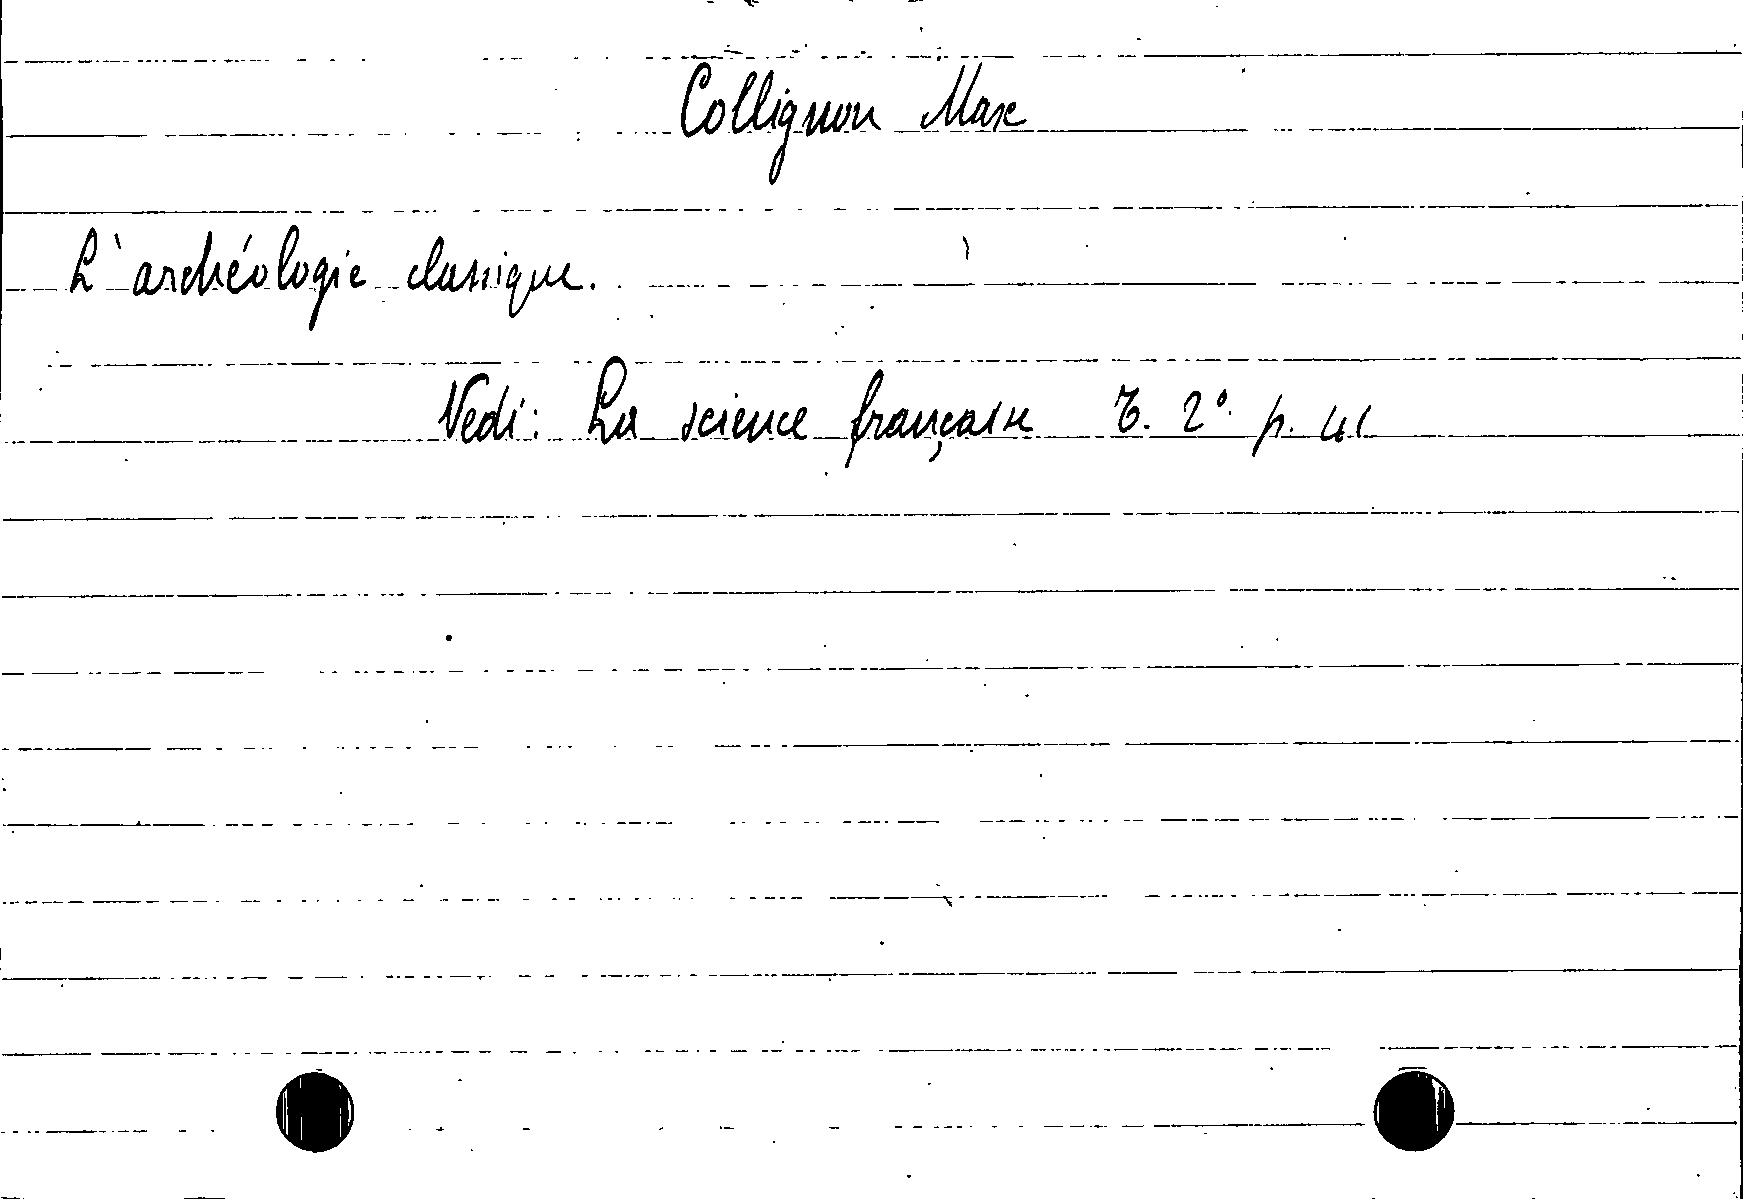 Collignon Max
L'archéologie classique.
Vedi: La science française T. 2° p. 41